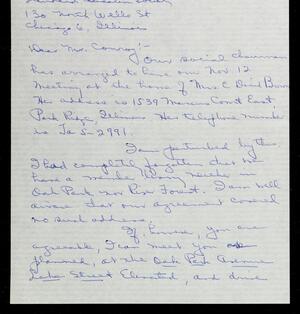 130 North Wells St
Chicago 6, Illinois
Dear Mr. Conroy:-
Our social chairman
has arranged to have our Nov. 12
meeting at the home of Mrs C. David
Her address is 1539 Marcus Court East,
Park Ridge, Illinois. Her telephone number
is Ta 5-2991.
I am perturbed by this.
I had completely forgotten that we
have a member living neither in
Oak Park nor River Forest. I am well
aware that our agreement covered
no such address.
If, however, you are
agreeable, I can meet you as
planned, at the Oak Park Avenue
Lake Street Elevated, and drive